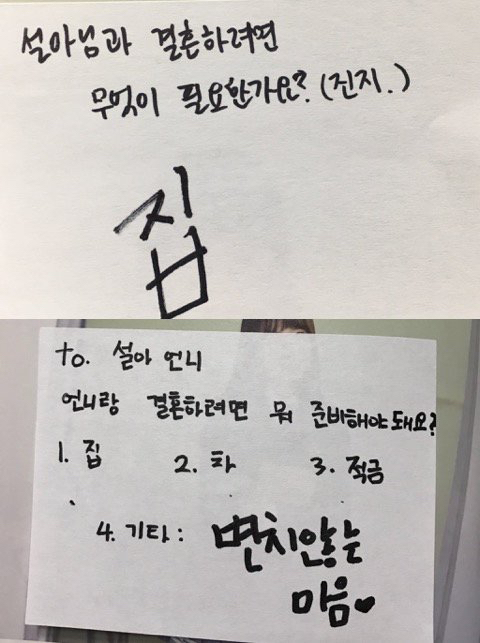 설아님과 결혼하려면
무엇이 필요한가요? (진지.)
집
to. 설아 언니
언니랑 결혼하려면 뭐 준비해야돼요?
1. 집 2. 차 3. 적금
4. 기타 : 변치않는
마음♥